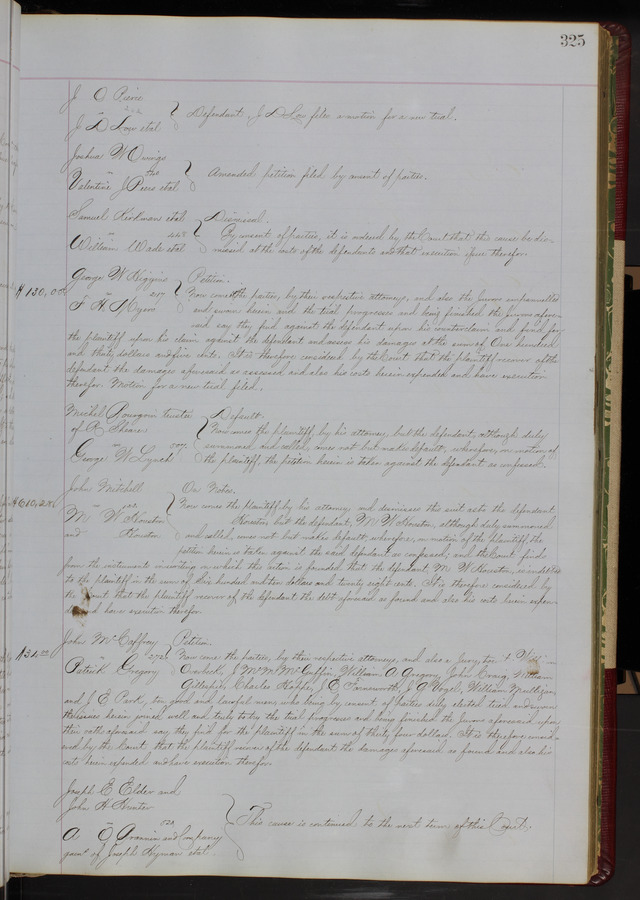 325
J O Pierce
J D Low et al } Defendant J D Low files a motion for a new trial.
Joshua W Owings
Valentine J Peers et al } Amended petition filed by consent of parties.
Samuel Kirkman et al } Dismissed.
448 By consent of parties, it is ordered by the Court that this cause be dis-
William Wade et al missed at the costs of the defendants and that execution issue therefor.
George W Higgins } Petition.
$130,05 F H Myers Now come the parties, by their respective attorneys, and also the Jurors empannelled
and sworn herein and the trial progresses and being finished the Jurors afore-
said say they find against the defendant upon his counterclaim and find for
the plaintiff upon his claim against the defendant and assess his damages at the sum of One hundred
and thirty dollars and five cents. It is therefore considered by the Court that the plaintiff recover of the
defendant the damages aforesaid so assessed and also his costs herein expended and have execution
therefor. Motion for a new trial filed.
Michel trustee } Default.
of Now comes the plaintiff, by his attorney but the defendant, although duly
summoned and called, comes not but makes default, wherefore, on motion of
George W Lynch the plaintiff, the petition herein is taken against the defendant as confessed.
John Mitchell } On Notes.
$610,28 Now comes the plaintiff, by his attorney, and dismisses this suit as to the defendant
M W Houston Houston, but the defendant, M W Houston, although duly summoned
and Houston and called, comes not but makes default, wherefore, on motion of the plaintiff, the
petition herein is taken against the said defendant as confessed, and the Court finds
from the instruments in writing on which the action is founded that the defendant, M W Houston, is indebted
to the plaintiff in the sum of Six hundred and ten dollars and twenty eight cents. It is therefore considered by
the Court that the plaintiff recover of the defendant the debt aforesaid so found and also his costs herein expen-
ded and have execution therefor.
John McCaffrey } Petition.
$34.00 Now come the parties, by their respective attorneys, and also a Jury, to wit
Patrick Gregory Overbeck, J McGaffin, William A Gregory, John Craig, William
Gillespie, Charles Hoppe, J E Farnsworth, J A Vogel, William Mulligan
and J E Park, ten good and lawful men, who being by consent of parties duly elected tried and sworn
the issues herein joined well and truly to try the trial progresses and being finished the Jurors aforesaid upon
their oath aforesaid say they find for the plaintiff in the sum of thirty four dollars. It is therefore consid-
ered by the Court that the plaintiff recover of the defendant the damages aforesaid so found and also his
costs herein expended and have execution therefor.
Joseph E Elder and
John H Hunter
} This cause is continued to the next term of this Court.
A and Company
garnt of Joseph Hyman et al.